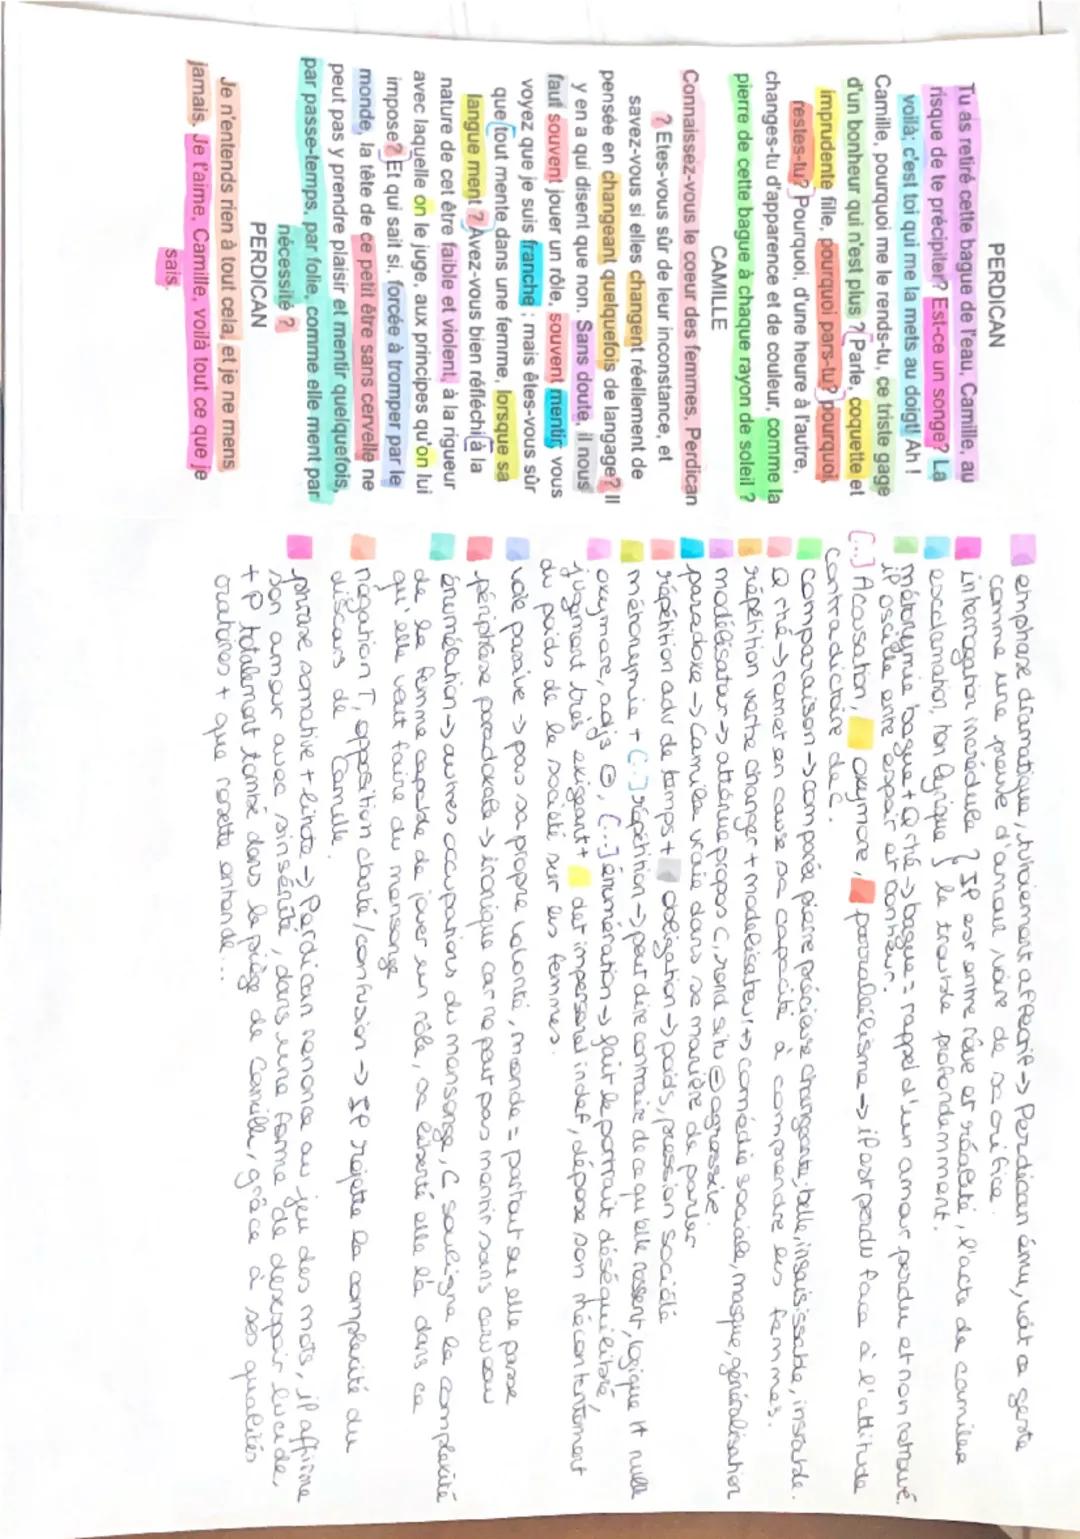 PERDICAN
Tu as retiré cette bague de l'eau, Camille, au
risque de te précipiter? Est-ce un songe? La
voilà; c'est toi qui me la mets au doigt! Ah !
Camille, pourquoi me le rends-tu, ce triste gage
d'un bonheur qui n'est plus ? Parle, coquette et
imprudente fille, pourquoi pars-tu? pourquoi
restes-tu? Pourquoi, d'une heure à l'autre,
changes-tu d'apparence et de couleur, comme la
pierre de cette bague à chaque rayon de soleil ?
CAMILLE
Connaissez-vous le coeur des femmes, Perdican
? Etes-vous sûr de leur inconstance, et
savez-vous si elles changent réellement de
pensée en changeant quelquefois de langage? Il
y en a qui disent que non. Sans doute, il nous
faut souvent jouer un rôle, souvent mentir; vous
voyez que je suis franche ; mais êtes-vous sûr
que tout mente dans une femme, lorsque sa
langue ment ? Avez-vous bien réfléchi à la
nature de cet être faible et violent, à la rigueur
avec laquelle on le juge, aux principes qu'on lui
impose? Et qui sait si, forcée à tromper par le
monde, la tête de ce petit être sans cervelle ne
peut pas y prendre plaisir et mentir quelquefois,
par passe-temps, par folie, comme elle ment par
nécessité ?
PERDICAN
Je n'entends rien à tout cela, et je ne mens
jamais. Je t'aime, Camille, voilà tout ce que je
sais.
emphase dramatique, vraiement affecrif -> Perdican ému, voit ce geste
comme une preuve d'amour, voire de sacrifice.
interrogation incrédule } IP est entre rêve et réalité, l'acte de camille
exclamation, ton lyrique } le trouble profondemment.
métonymie bague + Q rhé -> bague = rappel d'un amour perdu et non retrouvé.
iP oscille entre espoir et bonheur.
[...] Acusation, oxymore, parrallélisme -> iP est perdu face à l'attitude
contradictoire de C.
comparaison -> comparée pierre précieuse changeante, belle, insaisissable, instable.
Q rhé -> remet en cause sa capacité à comprendre les femmes.
répétition verbe changer + modélisateur -> comédie sociale, masque, généralisation
modélisateur -> atténue propos C, rend situ ⊖ agressive.
paradoxe -> Camille vraie dans sa manière de parler
répétition adv de temps + obligation -> poids, pression société
métonymie + [..] répétition -> peut dire contraire de ce qu'elle ressent, logique
oxymore, adjs ⊖, [...] énumération -> fait le portrait déséquilibré,
jugement très exigeant + det impersonel indef, dépose son mécontentement
du poids de la société sur les femmes.
voie passive -> pas sa propre volonté, monde = partout où elle passe
périphrase paradoxale -> ironique car ne peut pas mentir sans cerveau
énumération -> autres occupations du mensonge, C souligne la complexité
de la femme capable de jouer un rôle, sa liberté elle l'a dans ce
qu'elle veut faire du mensonge
négation T, opposition clarté/confusion -> IP rejette la complexité du
discours de Camille.
phrase somative + litote -> Perdican renonce au jeu des mots, iP affirme
son amour avec sinsérité, dans une forme de désespoir lucide,
+ P totalement tombé dans le piège de Camille, grâce à ses qualités
oratoires + que rosette entende...